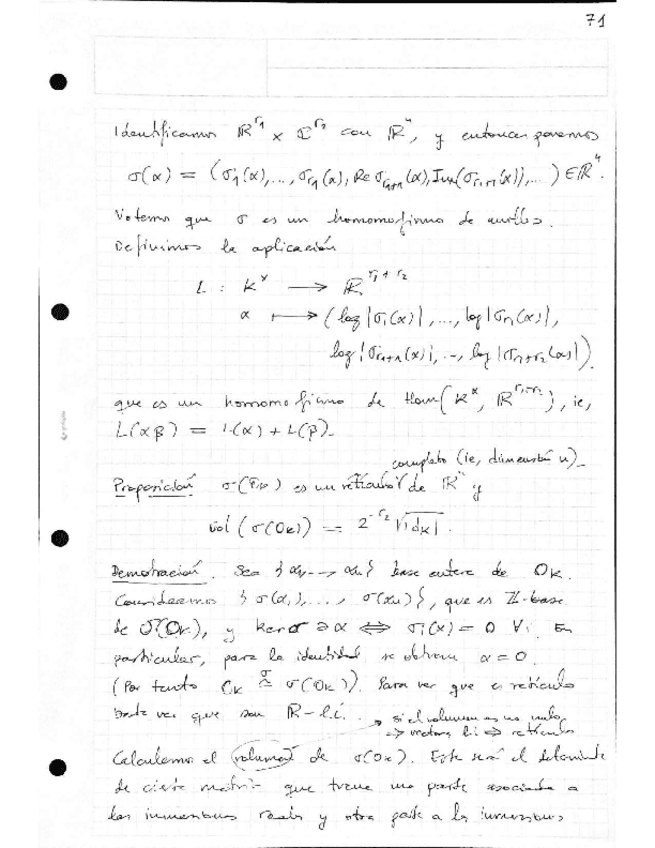 71
Identificamos ℝ^r₁ × ℂ^r₂ con ℝⁿ, y entonces ponemos
σ(α) = (σ₁(α),..., σr₁(α), Re σr₁+₁(α), Im(σr₁+₁(α)),...) ∈ ℝⁿ.
Notemos que σ es un homomorfismo de anillos.
Definimos la aplicación
L : K^× ⟶ ℝ^r₁+r₂
α ⟼ (log |σ₁(α)|,..., log|σr₁(α)|,
log|σr₁+₁(α)|, ..., log |σr₁+r₂(α)|).
que es un homomorfismo de Hom(K^×, ℝ^r₁+r₂), ie,
L(αβ) = L(α) + L(β).
completo (ie, dimensión n).
Proposición σ(O_K) es un retículo de ℝⁿ y
vol(σ(O_K)) = 2^-r₂ √|d_K|.
Demostración. Sea {α₁, ..., αₙ} base entera de O_K.
Consideremos {σ(α₁),..., σ(αₙ)}, que es ℤ-base
de σ(O_K), y Ker σ ∋ α ⟺ σᵢ(α) = 0 ∀i. En
particular, para la identidad se obtiene α = 0.
(Por tanto O_K ≅^σ σ(O_K)). Para ver que es retículo
basta ver que son ℝ-l.i. → si el volumen es no nulo
⇒ vectores l.i ⇒ retículo
Calculemos el volumen de σ(O_K). Este será el determinante
de cierta matriz que tiene una parte asociada a
las inmersiones reales y otra parte a las inmersiones